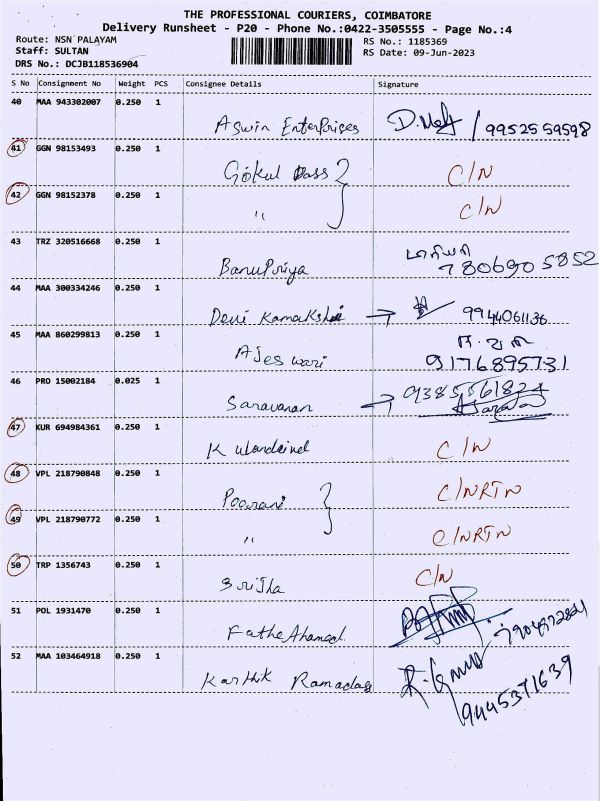 THE PROFESSIONAL COURIERS, COIMBATORE
Delivery Runsheet - P20 - Phone No.:0422-3505555 - Page No.:4
Route: NSN PALAYAM RS No.: 1185369
Staff: SULTAN RS Date: 09-Jun-2023
DRS No.: DCJB118536904
S No Consignment No Weight PCS Consignee Details Signature
40 MAA 943302007 0.250 1
Aswin Enterprises 9952559598
41 GGN 98153493 0.250 1
Gokul Dass C/N
42 GGN 98152378 0.250 1
" C/N
43 TRZ 320516668 0.250 1
BanuPriya 7806905852
44 MAA 300334246 0.250 1
Devi Kamakshi → 9944061136
45 MAA 860299813 0.250 1
AJeswari 9176895731
46 PRO 15002184 0.025 1
Saravanan → 9385561824
47 KUR 694984361 0.250 1
C/N
48 VPL 218790848 0.250 1
Poorani C/NRTN
49 VPL 218790772 0.250 1
" C/NRTN
50 TRP 1356743 0.250 1
C/N
51 POL 1931470 0.250 1
52 MAA 103464918 0.250 1
Karthik Ramadass
9445371639